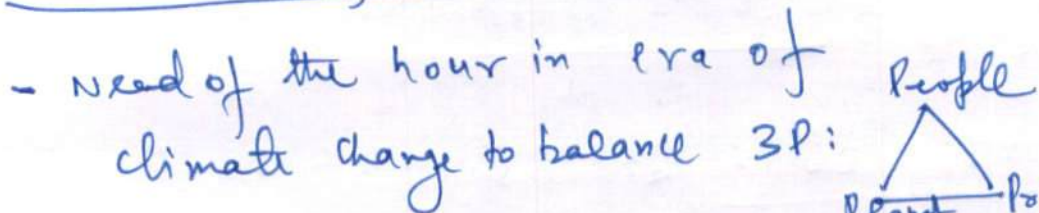 - Need of the hour in era of
climate change to balance 3P:
People
Planet